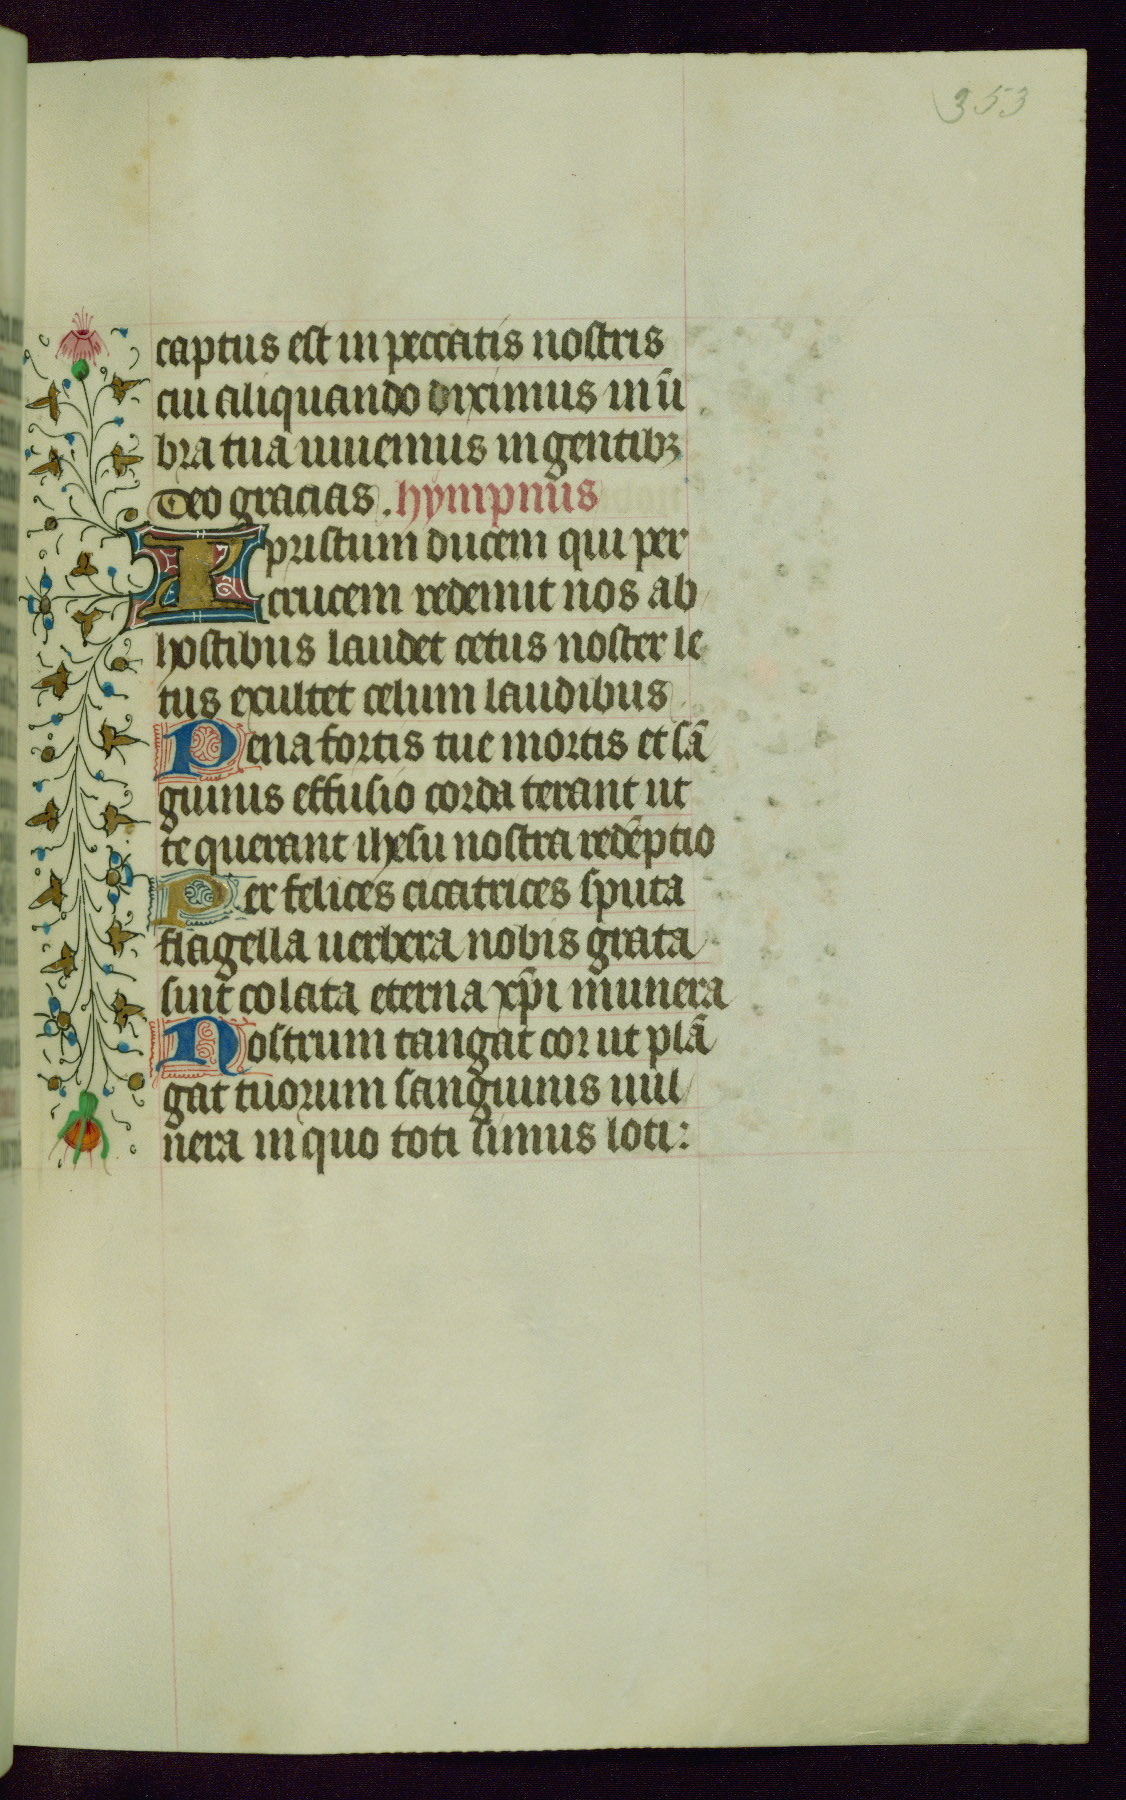 353
captus est in peccatis nostris
cui aliquando diximus in ū
bra tua uiuemus in gentibꝫ
Deo gracias. hympnus
Xpristum ducem qui per
crucem redemit nos ab
hostibus laudet cetus noster le
tus exultet celum laudibus
Pena fortis tue mortis et sā
guinis effusio corda terant ut
te querant ihesu nostra redēptio
Per felices cicatrices sputa
flagella uerbera nobis grata
sint colata eterna xp̄i munera
Nostrum tangat cor ut plā
gat tuorum sanguinis uul
nera in quo toti simus loti: